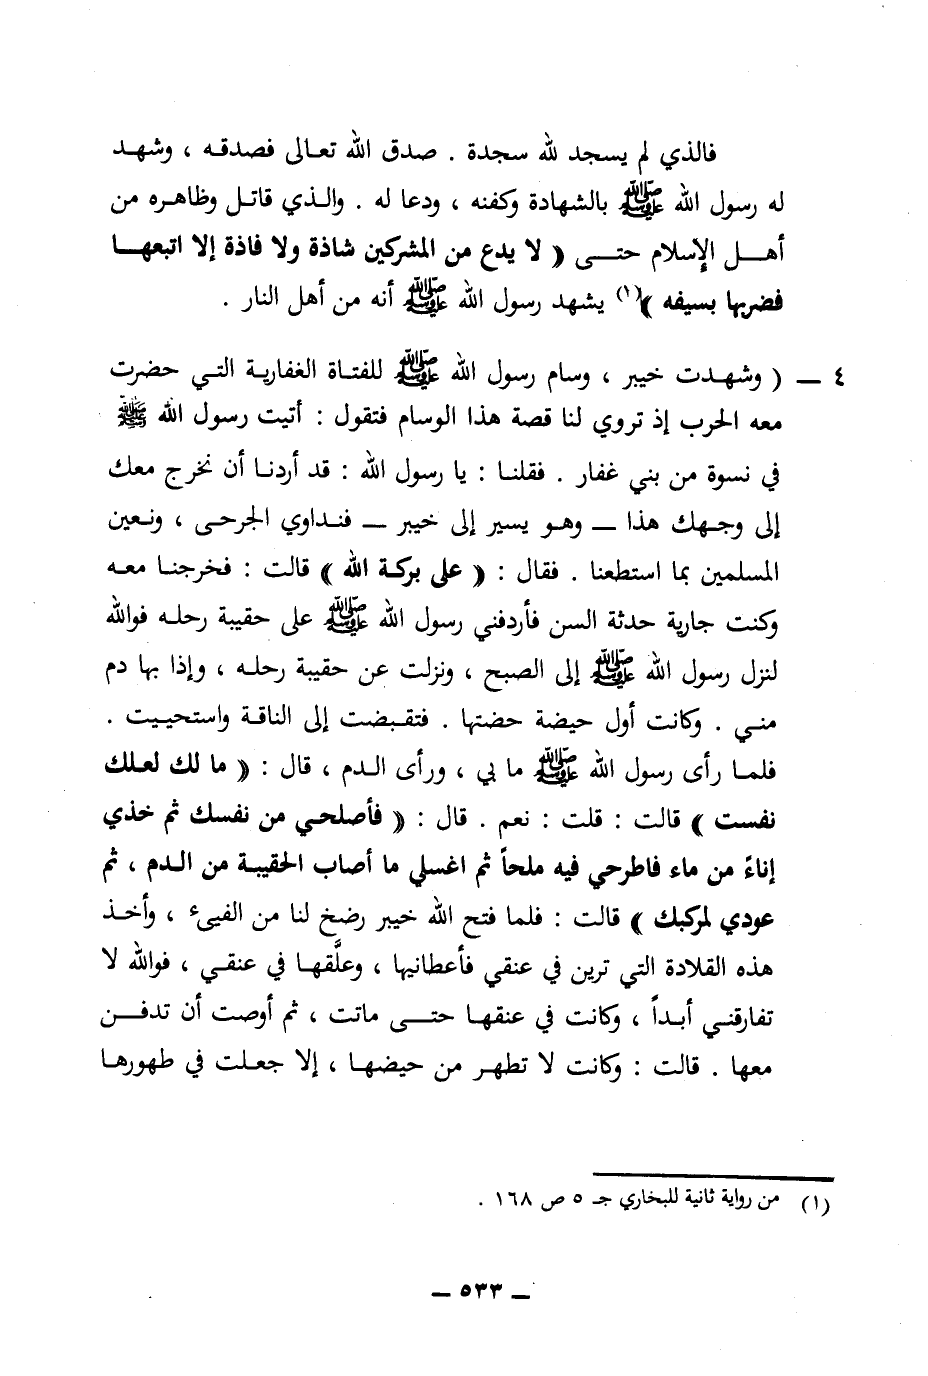 فالذي لم يسجد لله سجدة . صدق الله تعالى فصدقه ، وشهد
له رسول الله ﷺ بالشهادة وكفنه ، ودعا له . والذي قاتل وظاهره من
أهل الإسلام حتى ( لا يدع من المشركين شاذة ولا فاذة إلا اتبعها
فضربها بسيفه )(١) يشهد رسول الله ﷺ أنه من أهل النار .
٤ ــ ( وشهدت خيبر ، وسام رسول الله ﷺ للفتاة الغفارية التي حضرت
معه الحرب إذ تروي لنا قصة هذا الوسام فتقول : أتيت رسول الله ﷺ
في نسوة من بني غفار . فقلنا : يا رسول الله : قد أردنا أن نخرج معك
إلى وجهك هذا ــ وهو يسير إلى خيبر ــ فنداوي الجرحى ، ونعين
المسلمين بما استطعنا . فقال : ( على بركة الله ) قالت : فخرجنا معه
وكنت جارية حدثة السن فأردفني رسول الله ﷺ على حقيبة رحله فوالله
لنزل رسول الله ﷺ إلى الصبح ، ونزلت عن حقيبة رحله ، وإذا بها دم
مني . وكانت أول حيضة حضتها . فتقبضت إلى الناقة واستحييت .
فلما رأى رسول الله ﷺ ما بي ، ورأى الدم ، قال : ( ما لك لعلك
نفست ) قالت : قلت : نعم . قال : ( فأصلحي من نفسك ثم خذي
إناءً من ماء فاطرحي فيه ملحاً ثم اغسلي ما أصاب الحقيبة من الدم ، ثم
عودي لمركبك ) قالت : فلما فتح الله خيبر رضخ لنا من الفيىء ، وأخذ
هذه القلادة التي ترين في عنقي فأعطانيها ، وعلَّقها في عنقي ، فوالله لا
تفارقني أبداً ، وكانت في عنقها حتى ماتت ، ثم أوصت أن تدفن
معها . قالت : وكانت لا تطهر من حيضها ، إلا جعلت في طهورها
(١) من رواية ثانية للبخاري جـ ٥ ص ١٦٨ .
ــ ٥٣٣ ــ